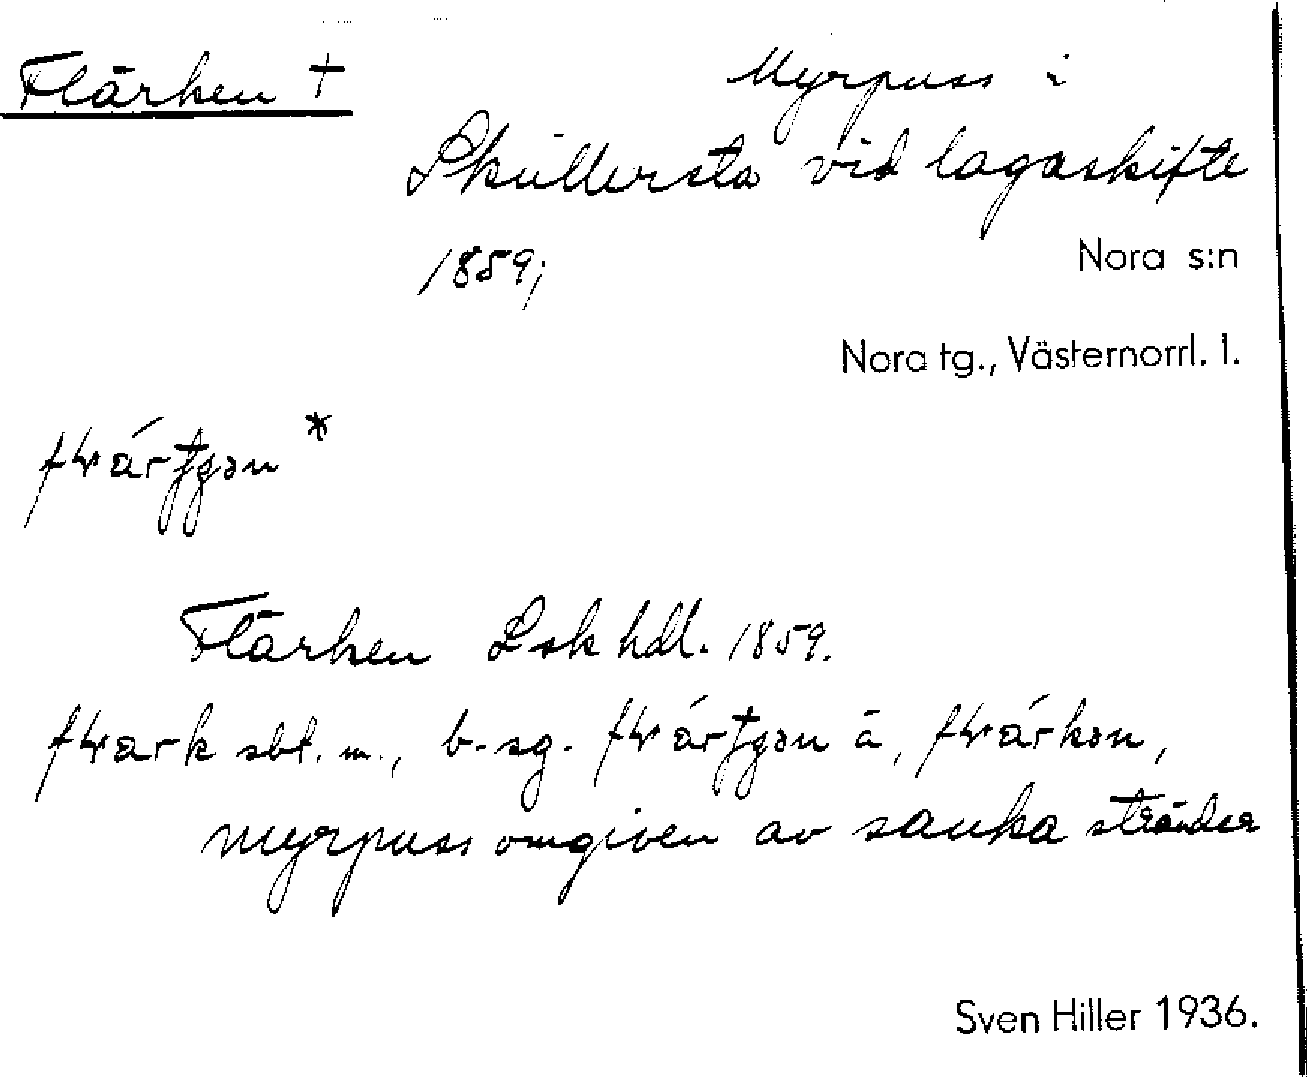 Flärken †
Myrpuss i
Skullersta vid lagaskifte
1859;
Nora s:n
Nora tg., Västernorrl. l.
Flärken Lsk hdl. 1859.
sbt. m., b. sg. å,
myrpuss omgiven av sanka stränder
Sven Hiller 1936.